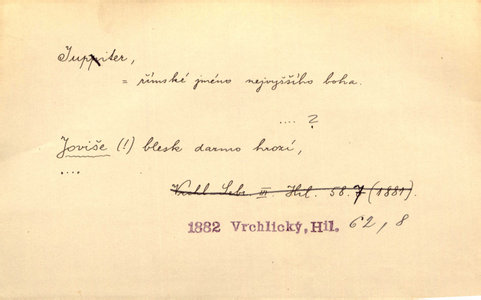 Juppiter,
= římské jméno nejvyššího boha.
.... ?
Joviše (!) blesk darmo hrozí,
....
Vrchl. Sebr. III. Hil. 58. 7 (1881).
1882 Vrchlický, Hil. 62, 8